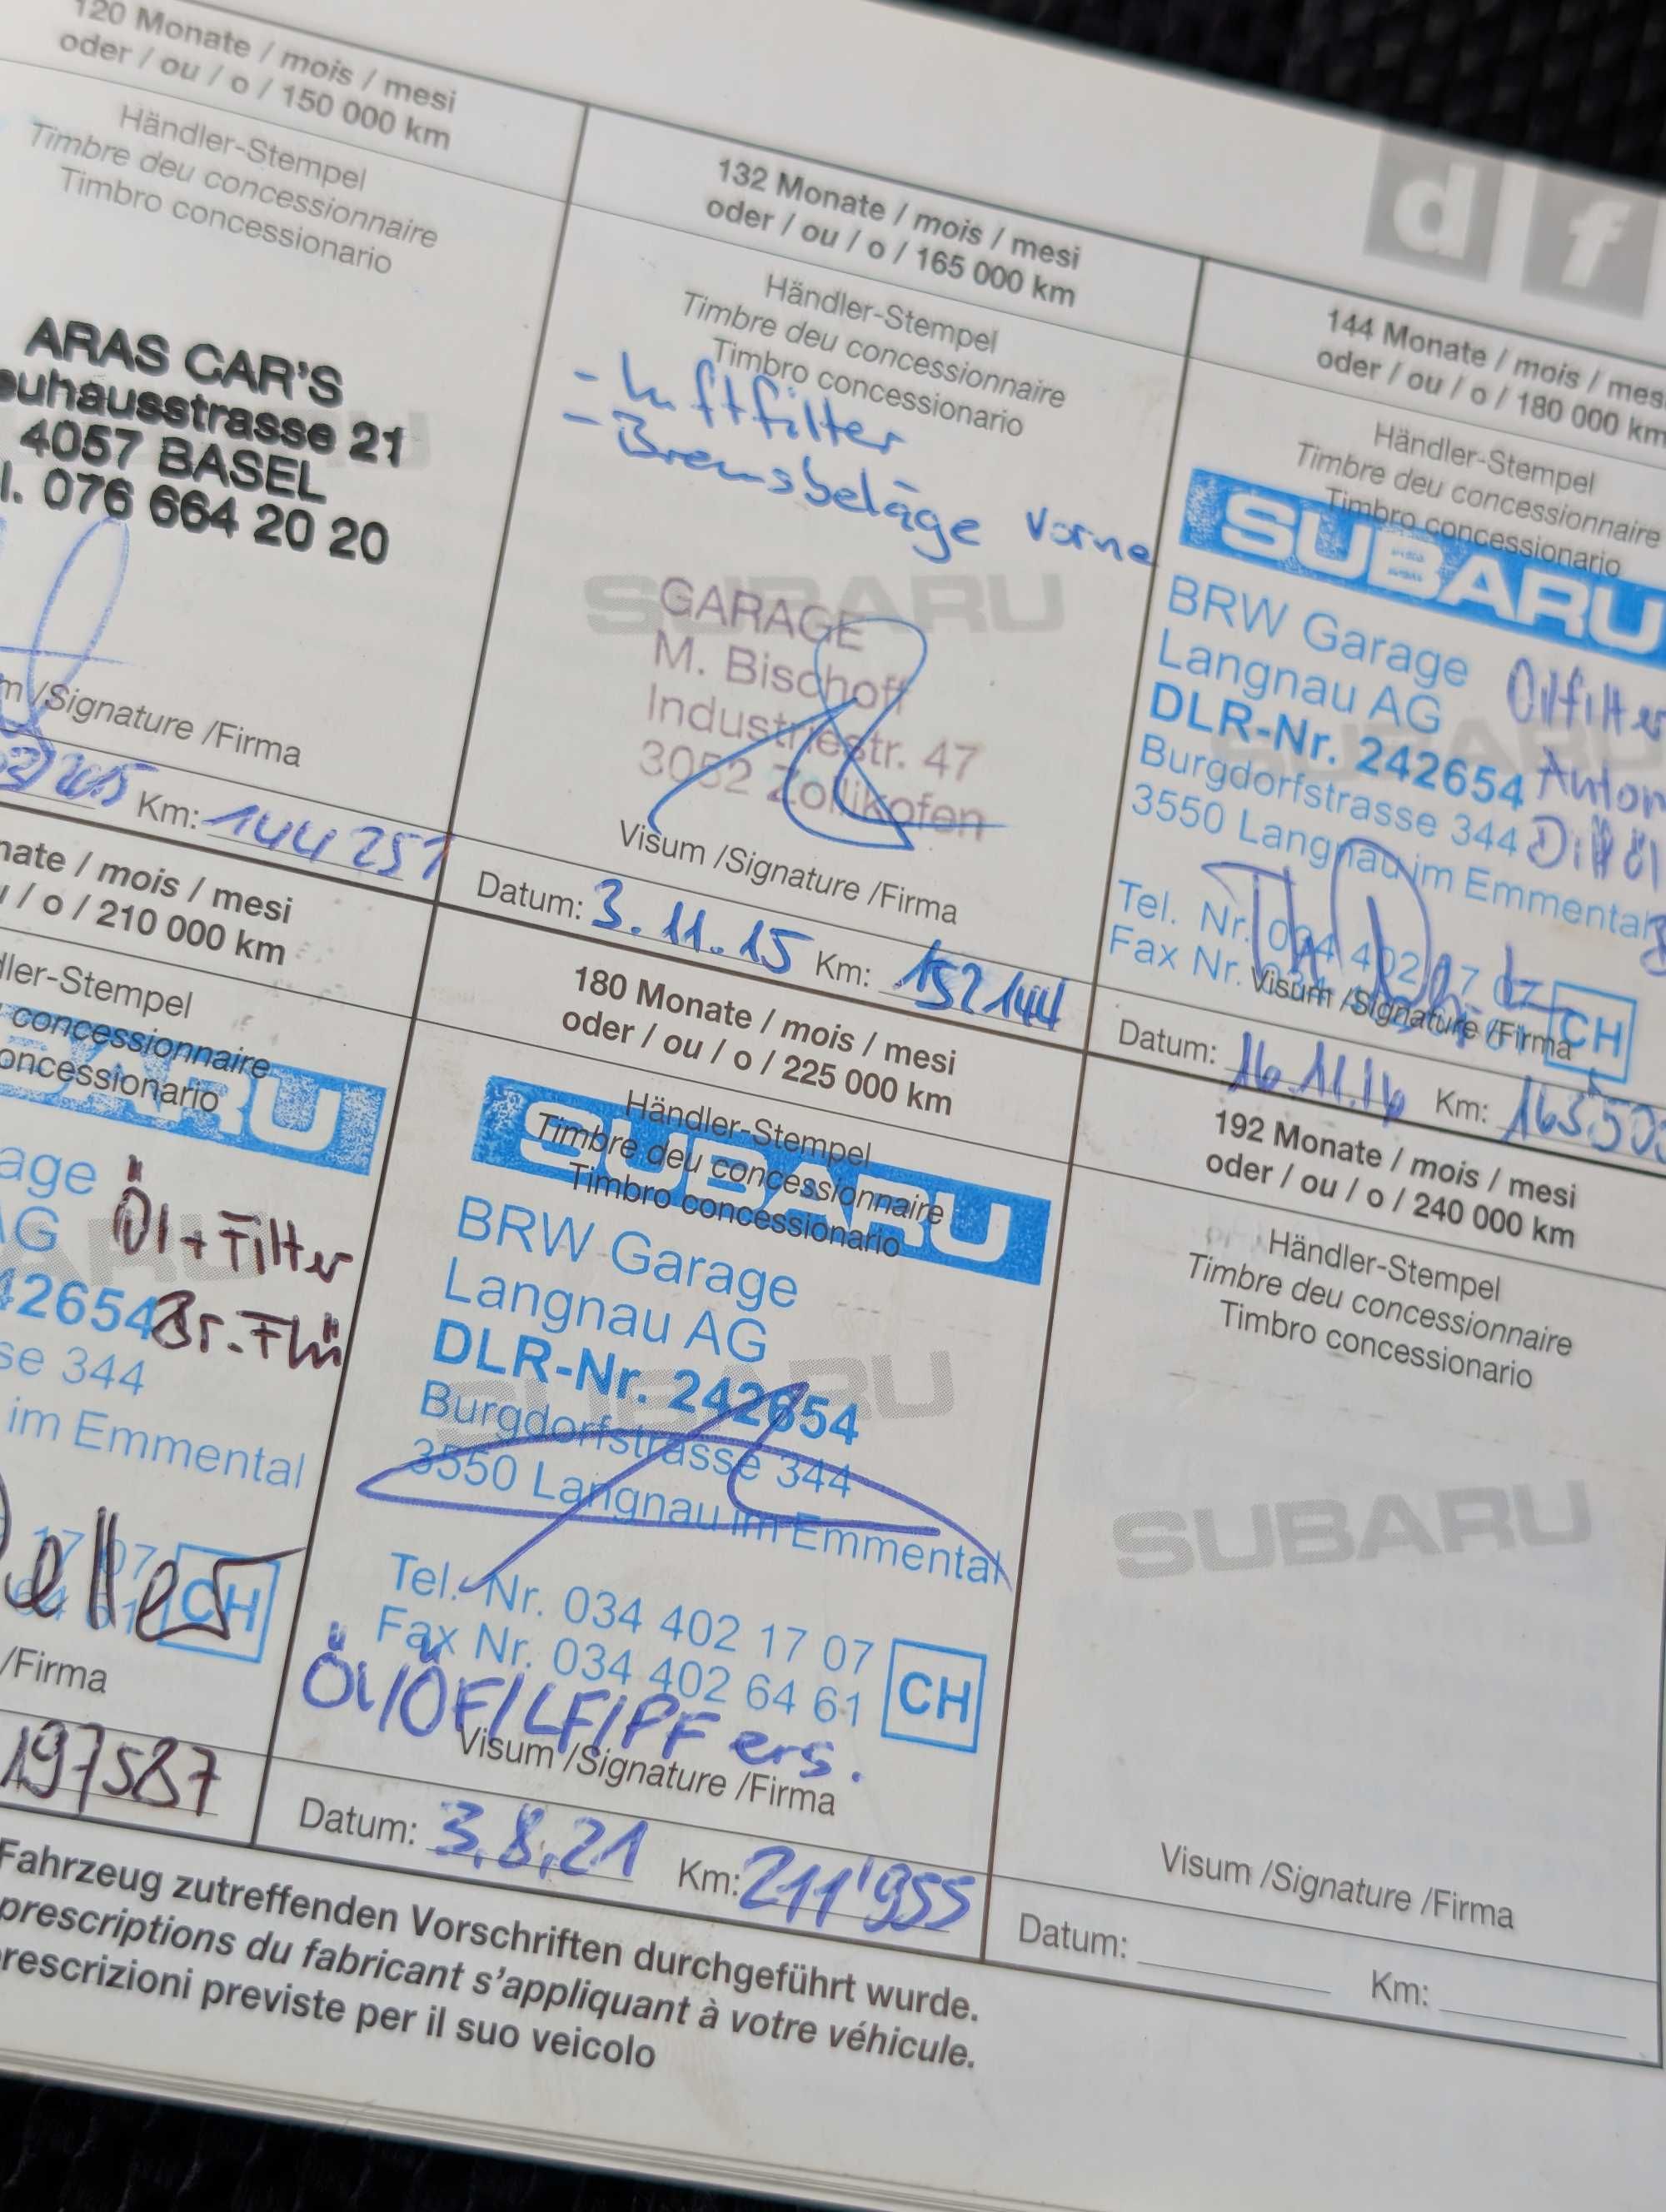 120 Monate / mois / mesi
oder / ou / o / 150 000 km
Händler-Stempel
Timbre deu concessionnaire
Timbro concessionario
ARAS CAR'S
euhausstrasse 21
4057 BASEL
l. 076 664 20 20
m /Signature /Firma
Km: 144 251
132 Monate / mois / mesi
oder / ou / o / 165 000 km
Händler-Stempel
Timbre deu concessionnaire
Timbro concessionario
- Luftfilter
- Bremsbeläge vorne
SUBARU
GARAGE
M. Bischoff
Industriestr. 47
3052 Zollikofen
Visum /Signature /Firma
Datum: 3.11.15 Km: 152144
d f
144 Monate / mois / mesi
oder / ou / o / 180 000 km
Händler-Stempel
Timbre deu concessionnaire
Timbro concessionario
SUBARU
BRW Garage
Langnau AG
Ölfilter
DLR-Nr. 242654
Burgdorfstrasse 344
Diff öl
3550 Langnau im Emmental
Tel. Nr. 034 402 17 07
Fax Nr.
CH
Visum /Signature /Firma
Datum: 16.11.16 Km:
nate / mois / mesi
u / o / 210 000 km
dler-Stempel
concessionnaire
oncessionario
ARU
age
Öl + Filter
AG
42654
Br. Flü
se 344
im Emmental
17 07
CH
/Firma
197587
180 Monate / mois / mesi
oder / ou / o / 225 000 km
Händler-Stempel
Timbre deu concessionnaire
Timbro concessionario
SUBARU
BRW Garage
Langnau AG
DLR-Nr. 242654
SUBARU
Burgdorfstrasse 344
3550 Langnau im Emmental
Tel. Nr. 034 402 17 07
Fax Nr. 034 402 64 61
CH
Öl/ÖF/LF/PF ers.
Visum /Signature /Firma
Datum: 3.8.21 Km: 211'955
192 Monate / mois / mesi
oder / ou / o / 240 000 km
Händler-Stempel
Timbre deu concessionnaire
Timbro concessionario
SUBARU
Visum /Signature /Firma
Datum: Km:
Fahrzeug zutreffenden Vorschriften durchgeführt wurde.
prescriptions du fabricant s'appliquant à votre véhicule.
rescrizioni previste per il suo veicolo